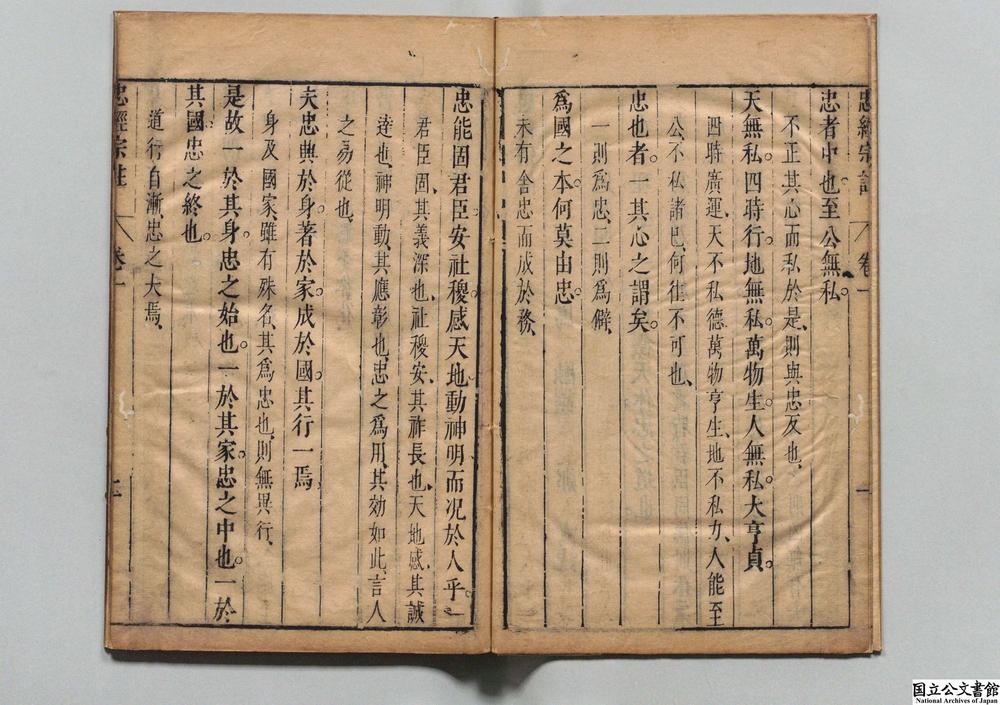 忠經宗註
卷一
一
忠者中也至公無私。
不正其心而私於是、則與忠反也、
天無私。四時行。地無私。萬物生。人無私。大亨貞。
四時廣運、天不私德、萬物亨生、地不私力、人能至
公不私諸已、何往不可也、
忠也者。一其心之謂矣。
一則爲忠、二則爲僻、
爲國之本。何莫由忠。
未有舍忠而成於務、
忠能固君臣。安社稷。感天地。動神明。而况於人乎。
君臣固、其義深也、社稷安、其祚長也、天地感、其誠
達也、神明動、其應彰也、忠之爲用、其効如此、言人
之易從也、
夫忠興於身。著於家。成於國。其行一焉
身及國家、雖有殊名、其爲忠也、則無異行、
是故一於其身。忠之始也。一於其家。忠之中也。一於
其國忠之終也。
道行自漸、忠之大焉、
忠經宗註
卷一
二
国立公文書館
National Archives of Japan